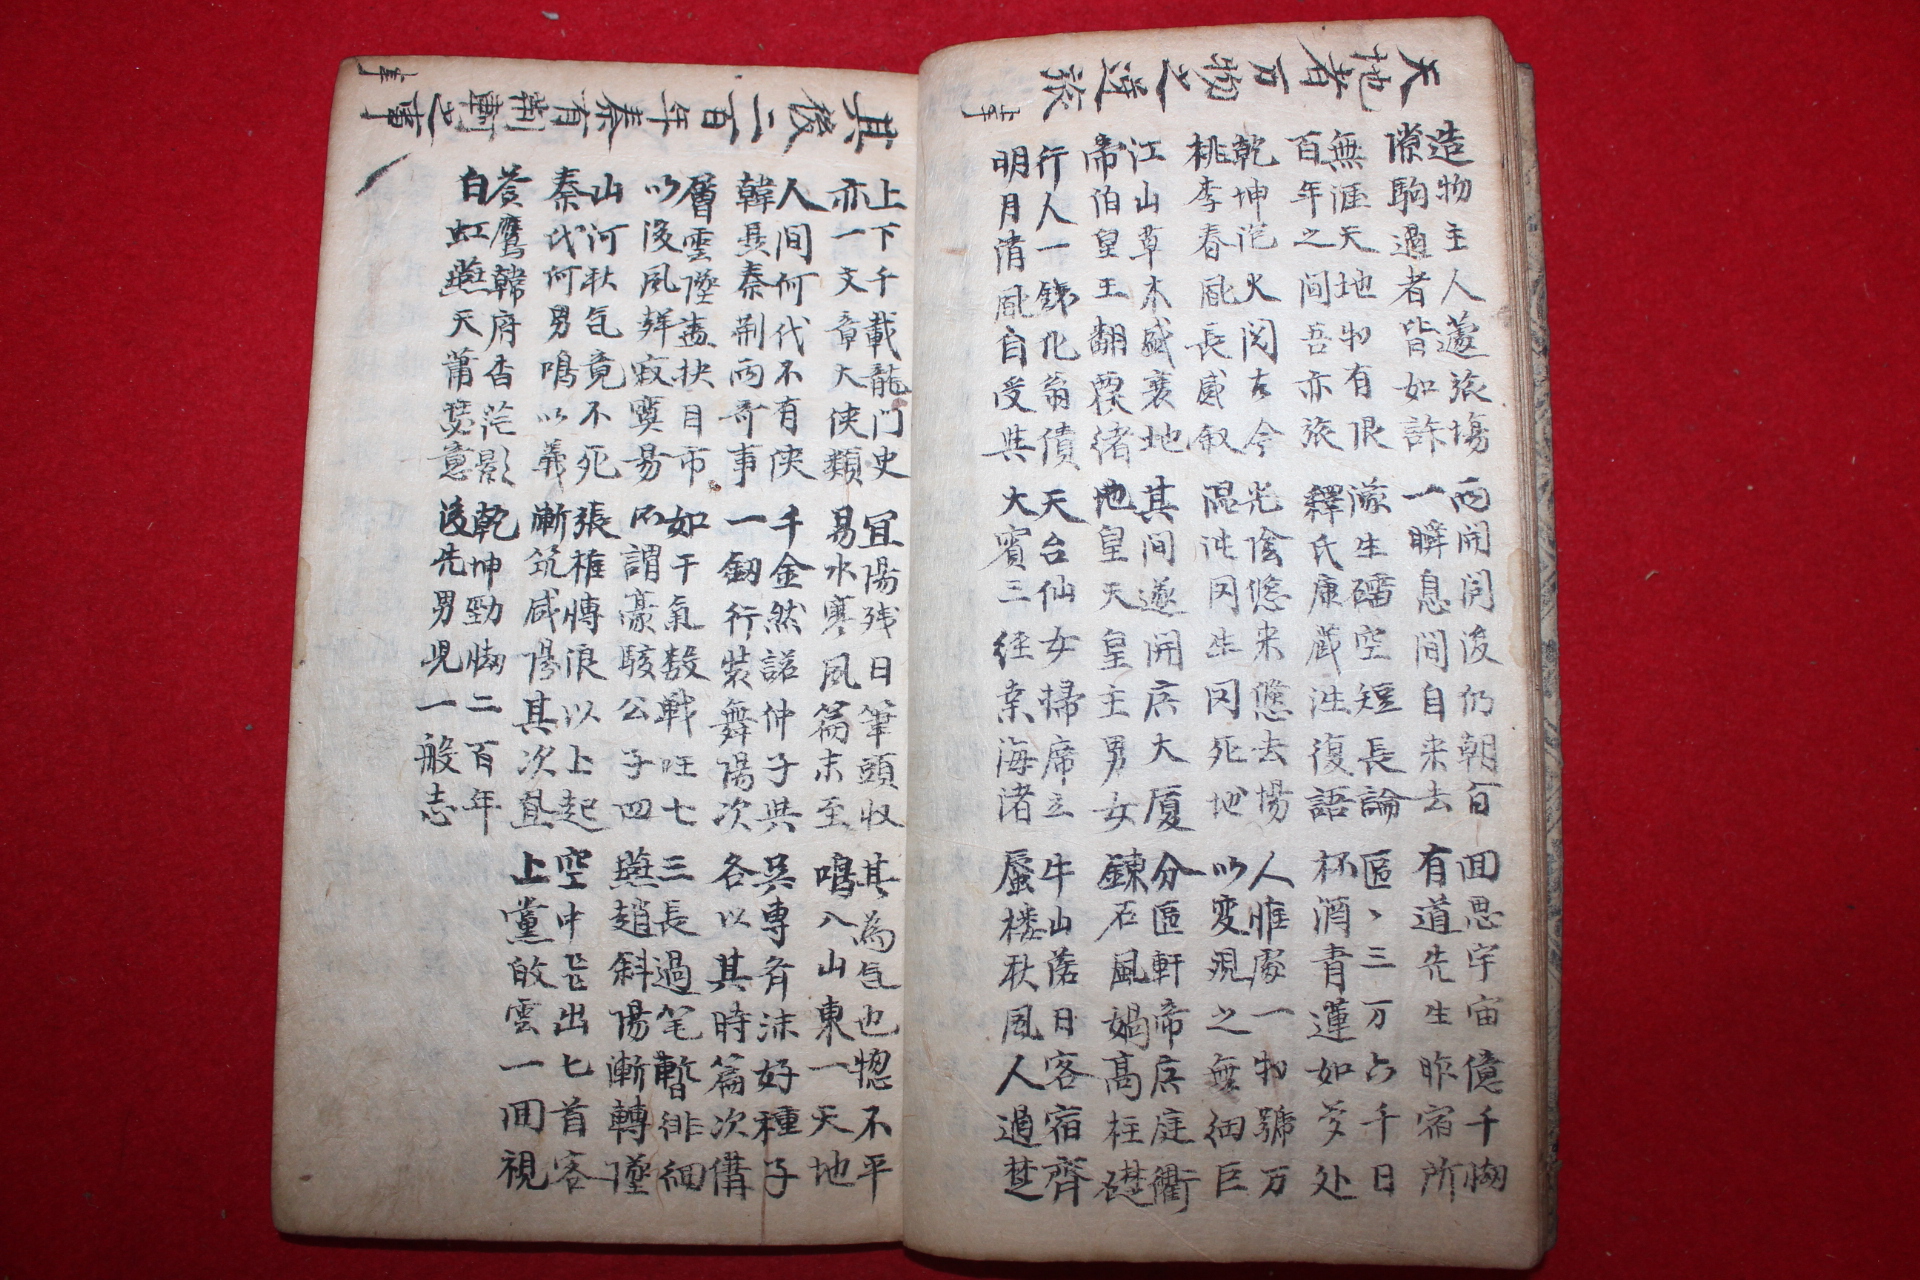 天地者万物之逆旅
造物主人蘧旅場
隙駒過者皆如許
兩開闢後仍朝百
一瞬息間自来去
回思宇宙億千劫
有道先生昨宿所
無涯天地物有限
百年之間吾亦旅
濛生空短長論
釋氏康蔵泩復語
區〻三万六千日
杯酒青蓮如夢处
乾坤火閱古今
桃李春風長咸叙
光陰悠来悠去場
混沌冈生冈死地
人惟處一物號万
以変覌之無細巨
江山草木盛衰地
帝伯皇王翻覆緒
其間遂開広大厦
地皇天皇主男女
分區軒帝広庭衢
鍊石風媧高柱礎
行人一錢化翁債
明月清風自受與
天台仙女掃席立
大賓三經東海渚
牛山落日客宿齊
蜃楼秋風人過楚
其後二百年秦有荊軻之事
上下千載龍门史
亦一文章大俠類
宜陽残日筆頭收
易水寒風篇末至
其為气也惣不平
鳴入山東一天地
人间何代不有俠
韓聂秦荆两奇事
千金然諾仲子與
一釼行裝舞陽次
吴專沫好種子
各以其時篇次俻
層雲墜盡抉目市
以後風寂寞易
如干氣数戦旺七
不謂豪駭公子四
三長過笔暫徘徊
燕趙斜陽漸轉墜
山河秋气竟不死
秦代何男鳴以義
張椎博浪以上起
漸筑咸陽其次置
空中出匕首客
上黨的雲一回視
蒼鷹韓府杳茫影
白虹燕天蕭瑟意
乾坤勁二百年
後先男児一般志